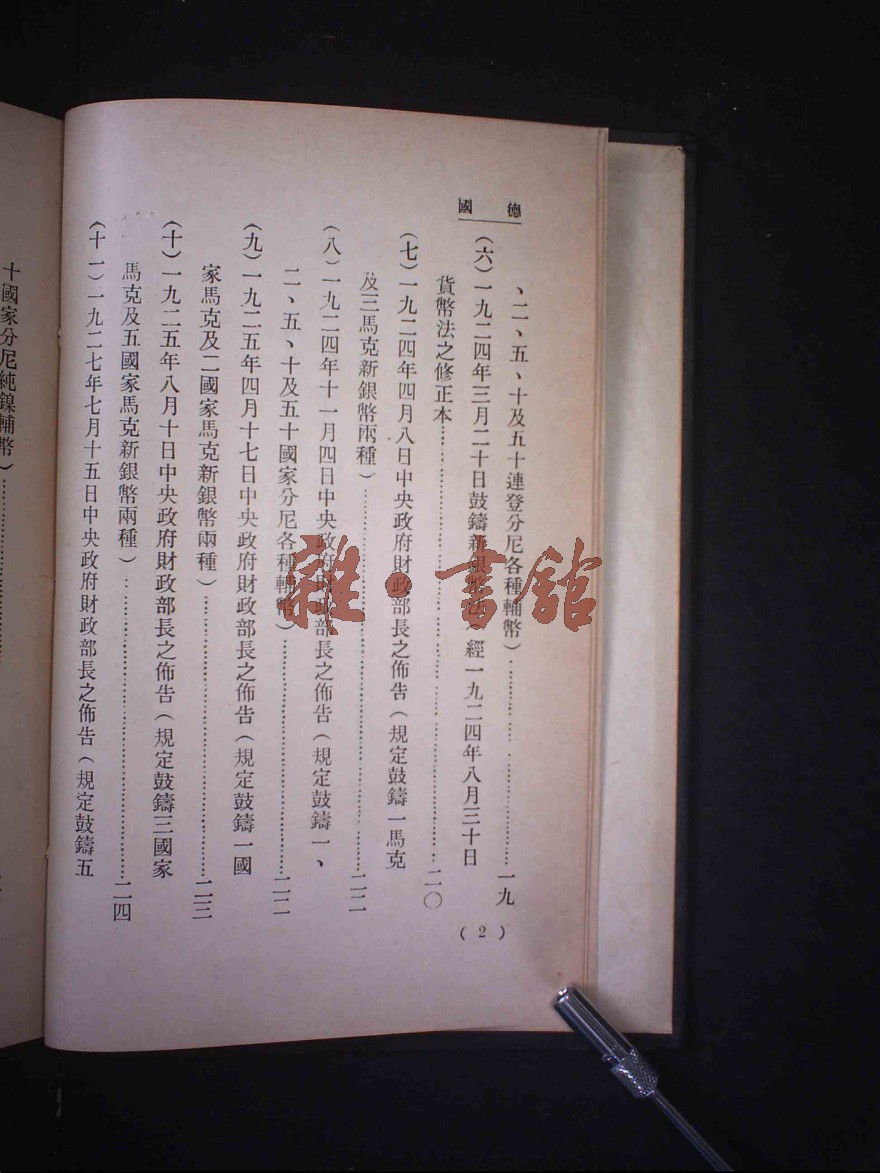 德國
、二、五、十及五十連登分尼各種輔幣)……一九
(六)一九二四年三月二十日鼓鑄新銀幣法(經一九二四年八月三十日
貨幣法之修正本……二〇
(七)一九二四年四月八日中央政府財政部長之佈告(規定鼓鑄一馬克
及三馬克新銀幣兩種)……二二
(八)一九二四年十一月四日中央政府財政部長之佈告(規定鼓鑄一、
二、五、十及五十國家分尼各種輔幣)……二二
(九)一九二五年四月十七日中央政府財政部長之佈告(規定鼓鑄一國
家馬克及二國家馬克新銀幣兩種)……二三
(十)一九二五年八月十日中央政府財政部長之佈告(規定鼓鑄三國家
馬克及五國家馬克新銀幣兩種)……二四
(十一)一九二七年七月十五日中央政府財政部長之佈告(規定鼓鑄五
(2)
十國家分尼純鎳輔幣)……
雜·書館